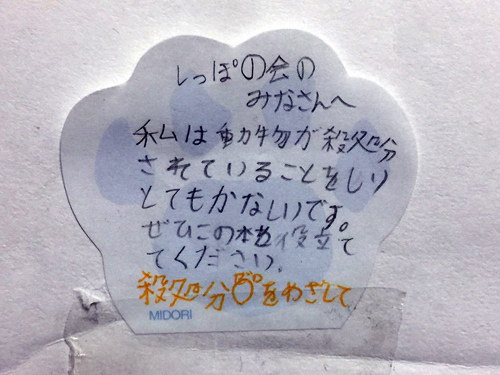 しっぽの会の
みなさんへ
私は動物が殺処分
されていることをしり
とてもかなしいです。
ぜひこの本を役立て
てください。
殺処分0をめざして
MIDORI